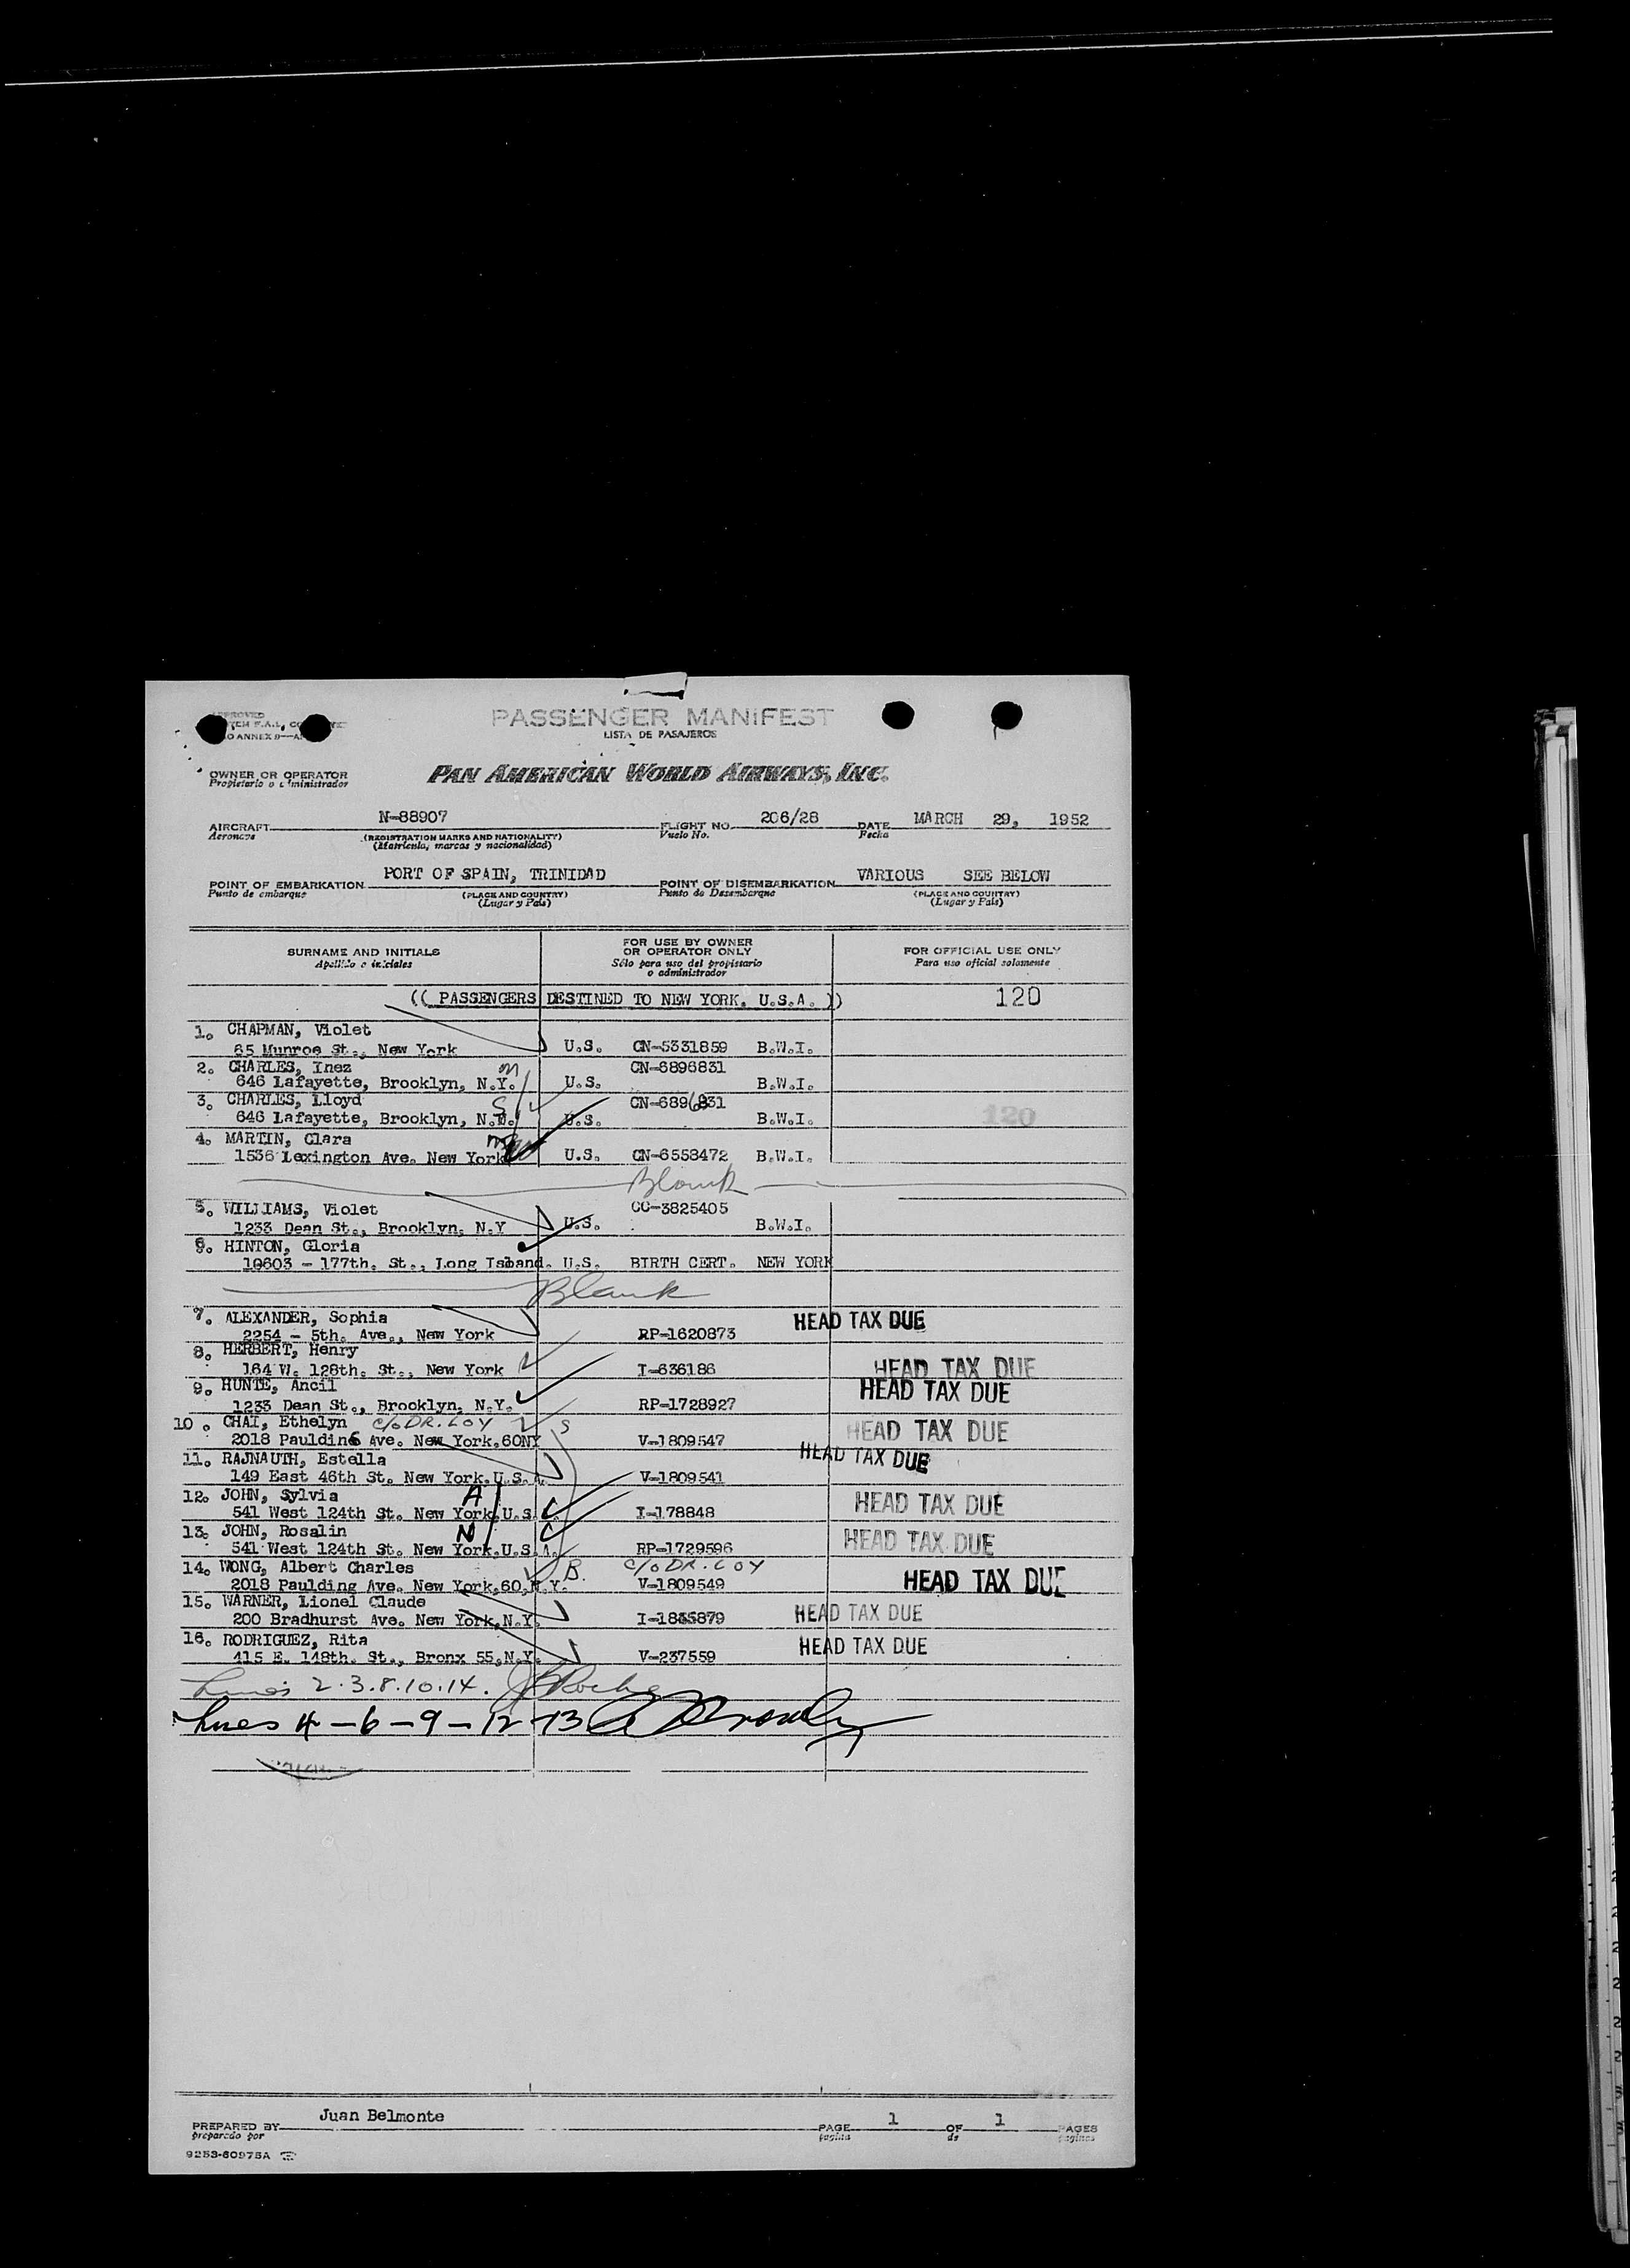 PASSENGER MANIFEST
LISTA DE PASAJEROS
OWNER OR OPERATOR
PAN AMERICAN WORLD AIRWAYS, INC.
AIRCRAFT N-88907 FLIGHT NO. 206/28 DATE MARCH 29, 1952
Aeronave (REGISTRATION MARKS AND NATIONALITY) Vuelo No. Fecha
(Matricula, marcas y nacionalidad)
POINT OF EMBARKATION PORT OF SPAIN, TRINIDAD POINT OF DISEMBARKATION VARIOUS SEE BELOW
Punto de embarque (PLACE AND COUNTRY) Punto de Desembarque (PLACE AND COUNTRY)
(Lugar y Pais) (Lugar y Pais)
SURNAME AND INITIALS FOR USE BY OWNER OR OPERATOR ONLY FOR OFFICIAL USE ONLY
Apellido e iniciales Sólo para uso del propietario o administrador Para uso oficial solamente
(( PASSENGERS DESTINED TO NEW YORK, U.S.A. )) 120
1. CHAPMAN, Violet
65 Munroe St., New York U.S. CN-5331859 B.W.I.
2. CHARLES, Inez M CN-6896831
646 Lafayette, Brooklyn, N.Y. U.S. B.W.I.
3. CHARLES, Lloyd S CN-6896831
646 Lafayette, Brooklyn, N.Y. U.S. B.W.I. 120
4. MARTIN, Clara
1536 Lexington Ave. New York U.S. CN-6558472 B.W.I.
Blank
5. WILLIAMS, Violet CC-3825405
1233 Dean St., Brooklyn, N.Y U.S. B.W.I.
6. HINTON, Gloria
10603 - 177th. St., Long Island. U.S. BIRTH CERT. NEW YORK
Blank
7. ALEXANDER, Sophia HEAD TAX DUE
2254 - 5th. Ave., New York RP-1620873
8. HERBERT, Henry
164 W. 128th. St., New York I-636186 HEAD TAX DUE
9. HUNTE, Ancil HEAD TAX DUE
1233 Dean St., Brooklyn, N.Y. RP-1728927
10. CHAI, Ethelyn c/o DR. LOY S HEAD TAX DUE
2018 Paulding Ave. New York,60NY V-1809547
11. RAJNAUTH, Estella HEAD TAX DUE
149 East 46th St. New York.U.S.A. V-1809541
12. JOHN, Sylvia A HEAD TAX DUE
541 West 124th St. New York.U.S. I-178848
13. JOHN, Rosalin N HEAD TAX DUE
541 West 124th St. New York.U.S.A. RP-1729596
14. WONG, Albert Charles B. c/o DR. LOY
2018 Paulding Ave. New York,60,N.Y. V-1809549 HEAD TAX DUE
15. WARNER, Lionel Claude
200 Bradhurst Ave. New York,N.Y. I-1835879 HEAD TAX DUE
16. RODRIGUEZ, Rita HEAD TAX DUE
415 E. 148th. St., Bronx 55,N.Y. V-237559
Lines 2.3.8.10.14.
Lines 4-6-9-12-13
PREPARED BY Juan Belmonte PAGE 1 OF 1 PAGES
preparado por pagina de paginas
9253-60975A